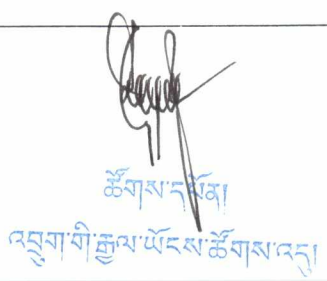 ཚོགས་དཔོན།
འབྲུག་གི་རྒྱལ་ཡོངས་ཚོགས་འདུ།